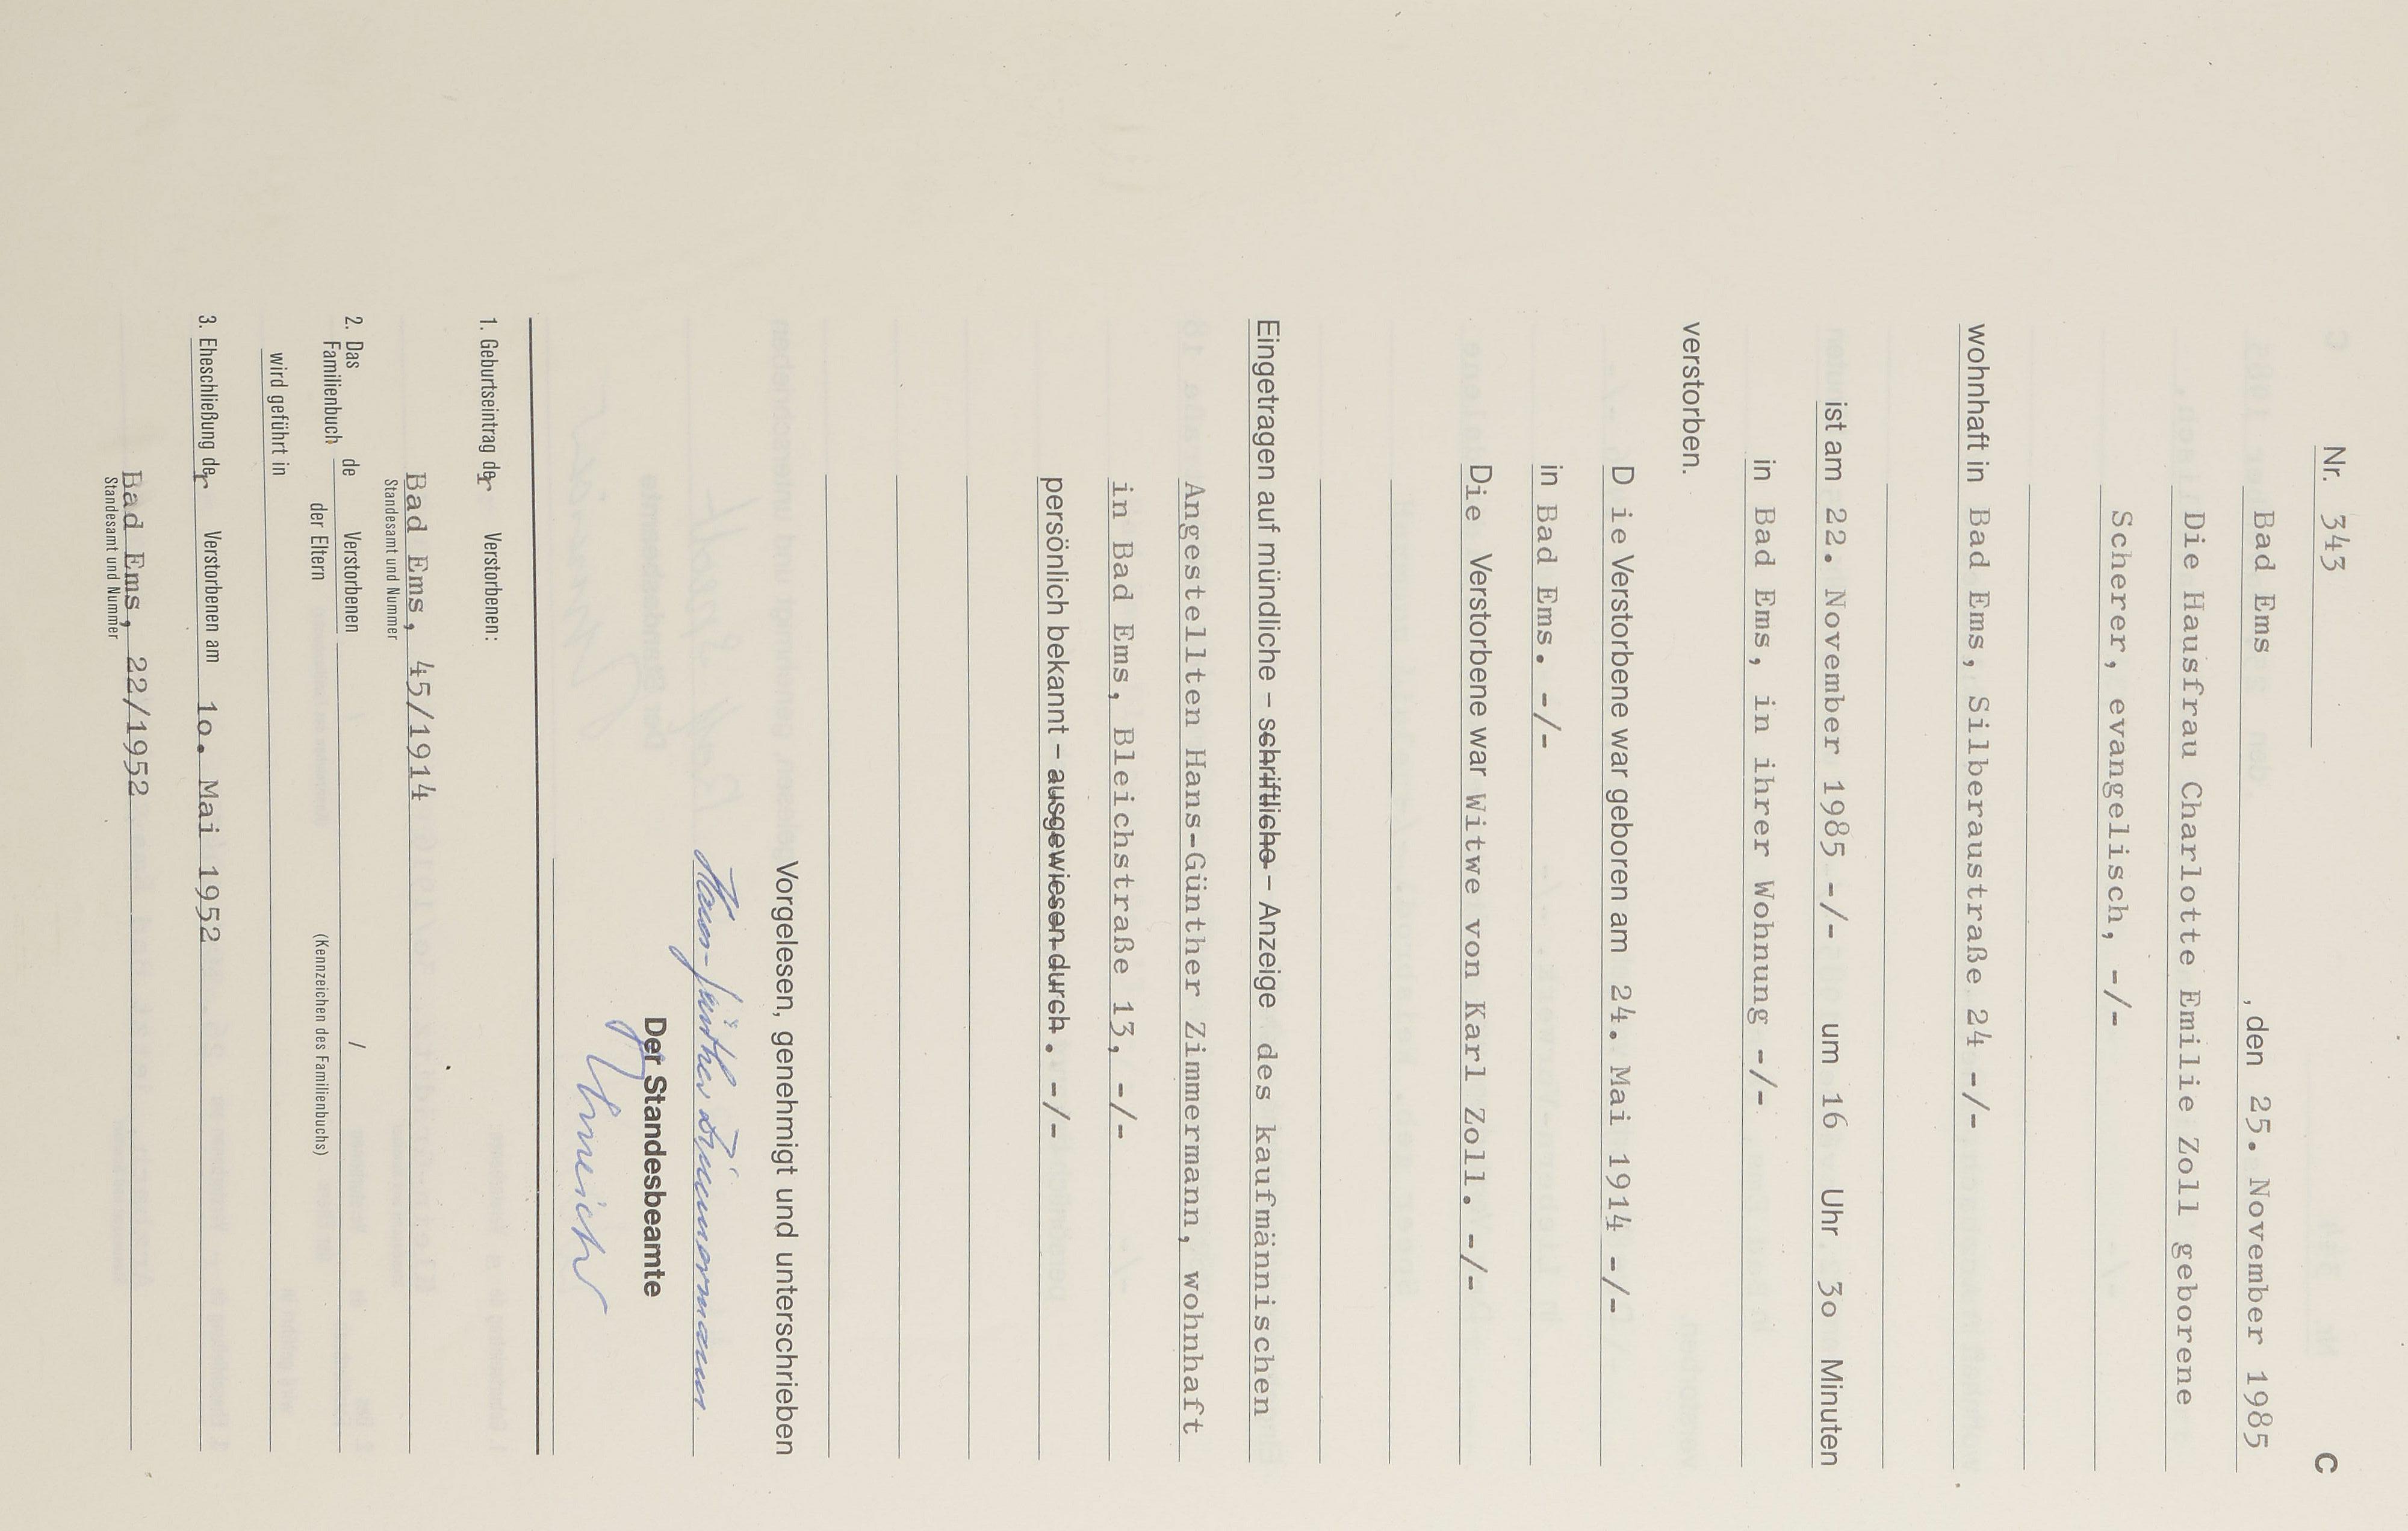 C
Nr. 343
Bad Ems, den 25. November 1985
Die Hausfrau Charlotte Emilie Zoll geborene
Scherer, evangelisch, -/-
wohnhaft in Bad Ems, Silberaustraße 24 -/-
ist am 22. November 1985 -/- um 16 Uhr 3o Minuten
in Bad Ems, in ihrer Wohnung -/-
verstorben.
D ie Verstorbene war geboren am 24. Mai 1914 -/-
in Bad Ems. -/-
Die Verstorbene war Witwe von Karl Zoll. -/-
Eingetragen auf mündliche – schriftliche – Anzeige des kaufmännischen
Angestellten Hans-Günther Zimmermann, wohnhaft
in Bad Ems, Bleichstraße 13, -/-
persönlich bekannt – ausgewiesen durch. -/-
Vorgelesen, genehmigt und unterschrieben
Hans-Günther Zimmermann
Der Standesbeamte
1. Geburtseintrag der Verstorbenen:
Bad Ems, 45/1914
Standesamt und Nummer
2. Das Familienbuch de Verstorbenen /
der Eltern (Kennzeichen des Familienbuchs)
wird geführt in
3. Eheschließung der Verstorbenen am 1o. Mai 1952
Bad Ems, 22/1952
Standesamt und Nummer